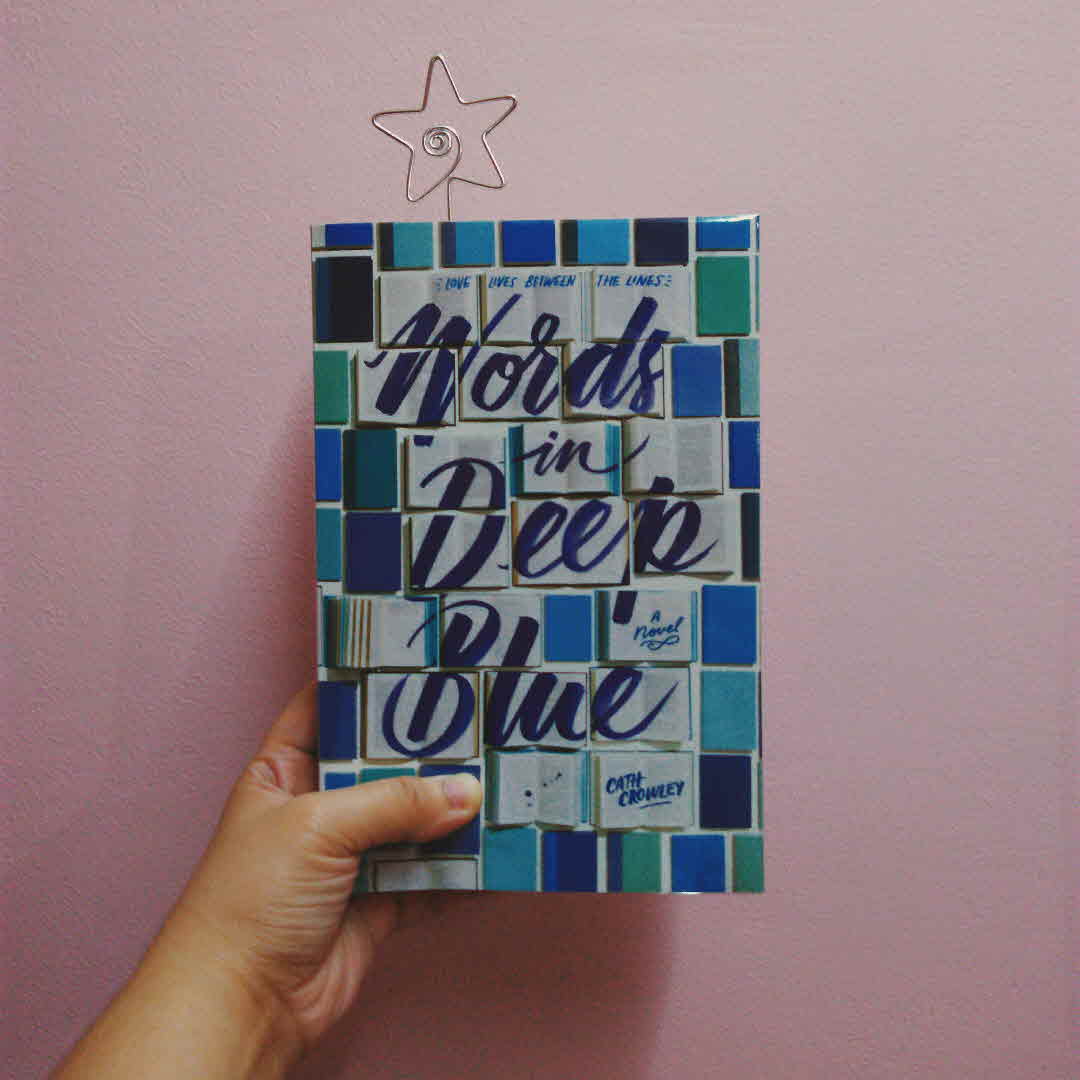 LOVE LIVES BETWEEN THE LINES
Words
in
Deep
Blue
A
Novel
CATH
CROWLEY